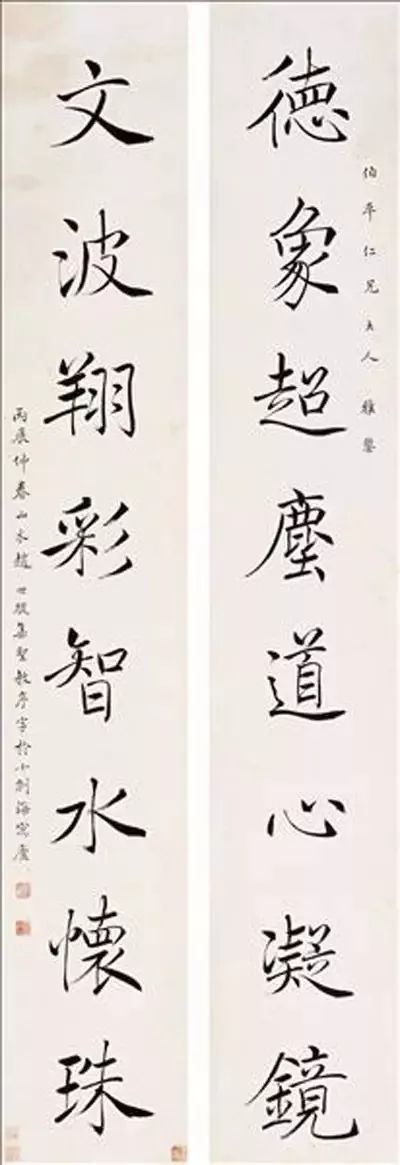 伯平仁兄大人雅鑒
德象超塵道心凝鏡
文波翔彩智水懷珠
丙辰仲春山水趙世駿集聖教序字於小刻海寓廬